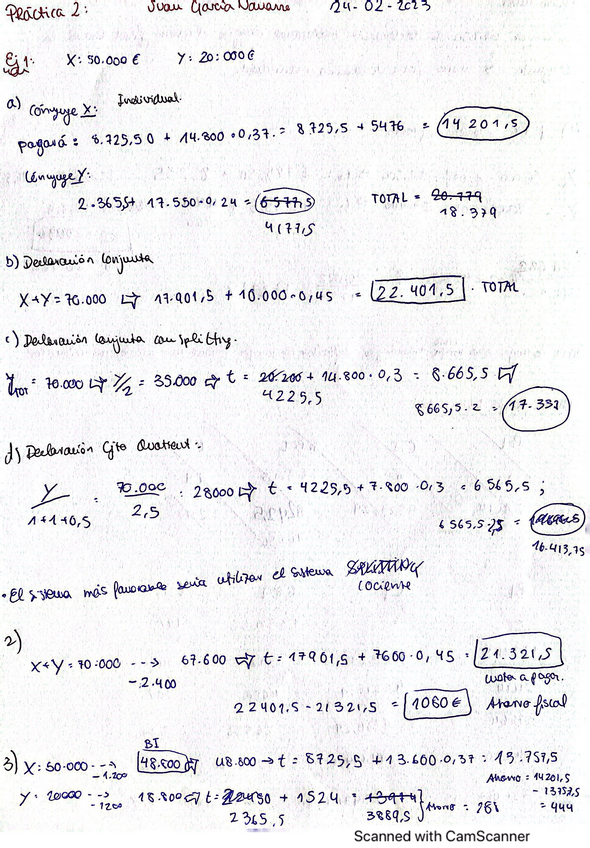 Práctica 2: Juan García Navarre 24-02-2023
Ej 1: X: 50.000 € Y: 20:000 €
a) Cónyuge X: Individual.
pagará: 8.725,50 + 14.800 · 0,37 = 8725,5 + 5476 = 14 201,5
Cónyuge Y:
2.365,5+ 17.550·0,24 = 6577,5 TOTAL = 20.779
4177,5 18.379
b) Declaración Conjunta
X+Y=70.000 ⇒ 17.901,5 + 10.000·0,45 = 22.401,5 . TOTAL
c) Declaración Conjunta con splitting.
YTOT = 70.000 ⇒ Y/2 = 35.000 ⇒ t = 20.200 + 14.800·0,3 = 8.665,5 ⇒
4225,5
8665,5·2 = 17.331
d) Declaración Cjta Quotient:
Y/1+1+0,5 = 70.000/2,5 = 28000 ⇒ t = 4225,5 + 7.800·0,3 = 6565,5 ;
6565,5·2,5 =
16.413,75
• El sistema más favorable sería utilizar el sistema SPLITTING
cociente
2)
X+Y = 70.000 --> 67.600 ⇒ t = 17901,5 + 7600·0,45 = 21.321,5
-2.400 cuota a pagar.
22401,5 - 21321,5 = 1080 € Ahorro fiscal
BI
3) X: 50.000 --> 48.800 ⇒ 48.800 → t = 8725,5 + 13.600·0,37 = 13.757,5
-1.200 Ahorro = 14201,5
- 13757,5
= 444
Y: 20000 --> 18.800 ⇒ t = + 1524 = Ahorro = 288
-1200 2365,5 3889,5
Scanned with CamScanner